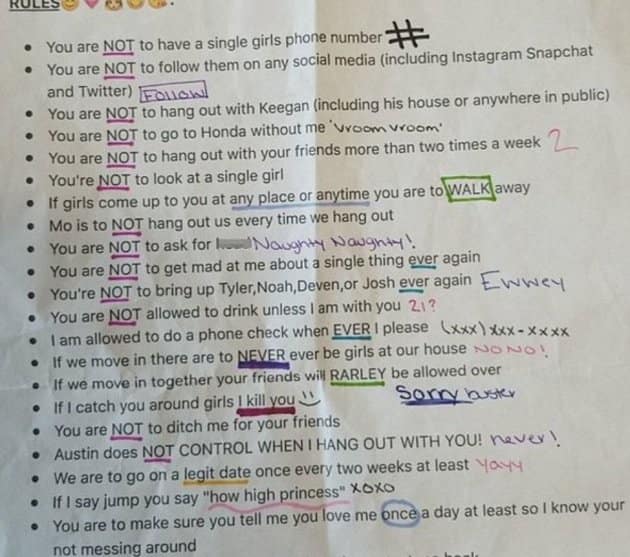 RULES
• You are NOT to have a single girls phone number #
• You are NOT to follow them on any social media (including Instagram Snapchat
and Twitter) Follow
• You are NOT to hang out with Keegan (including his house or anywhere in public)
• You are NOT to go to Honda without me 'vroom vroom'
• You are NOT to hang out with your friends more than two times a week 2
• You're NOT to look at a single girl
• If girls come up to you at any place or anytime you are to WALK away
• Mo is to NOT hang out us every time we hang out
• You are NOT to ask for Naughty Naughty!
• You are NOT to get mad at me about a single thing ever again
• You're NOT to bring up Tyler,Noah,Deven,or Josh ever again Ewwey
• You are NOT allowed to drink unless I am with you 21?
• I am allowed to do a phone check when EVER I please (xxx) xxx-xxxx
• If we move in there are to NEVER ever be girls at our house NO NO!
• If we move in together your friends will RARLEY be allowed over
• If I catch you around girls I kill you Sorry buster
• You are NOT to ditch me for your friends
• Austin does NOT CONTROL WHEN I HANG OUT WITH YOU! never!
• We are to go on a legit date once every two weeks at least Yayy
• If I say jump you say "how high princess" XOXO
• You are to make sure you tell me you love me once a day at least so I know your
not messing around